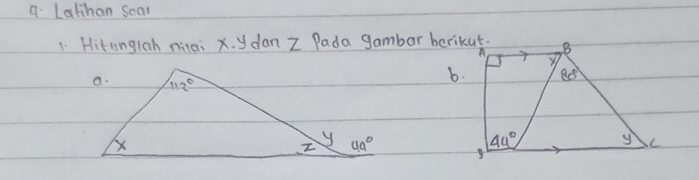 a. Latihan soal
1. Hitunglah nilai x.y dan z Pada gambar berikut.
a.
112°
x
z
y
44°
b.
A
B
x
88°
44°
y
C